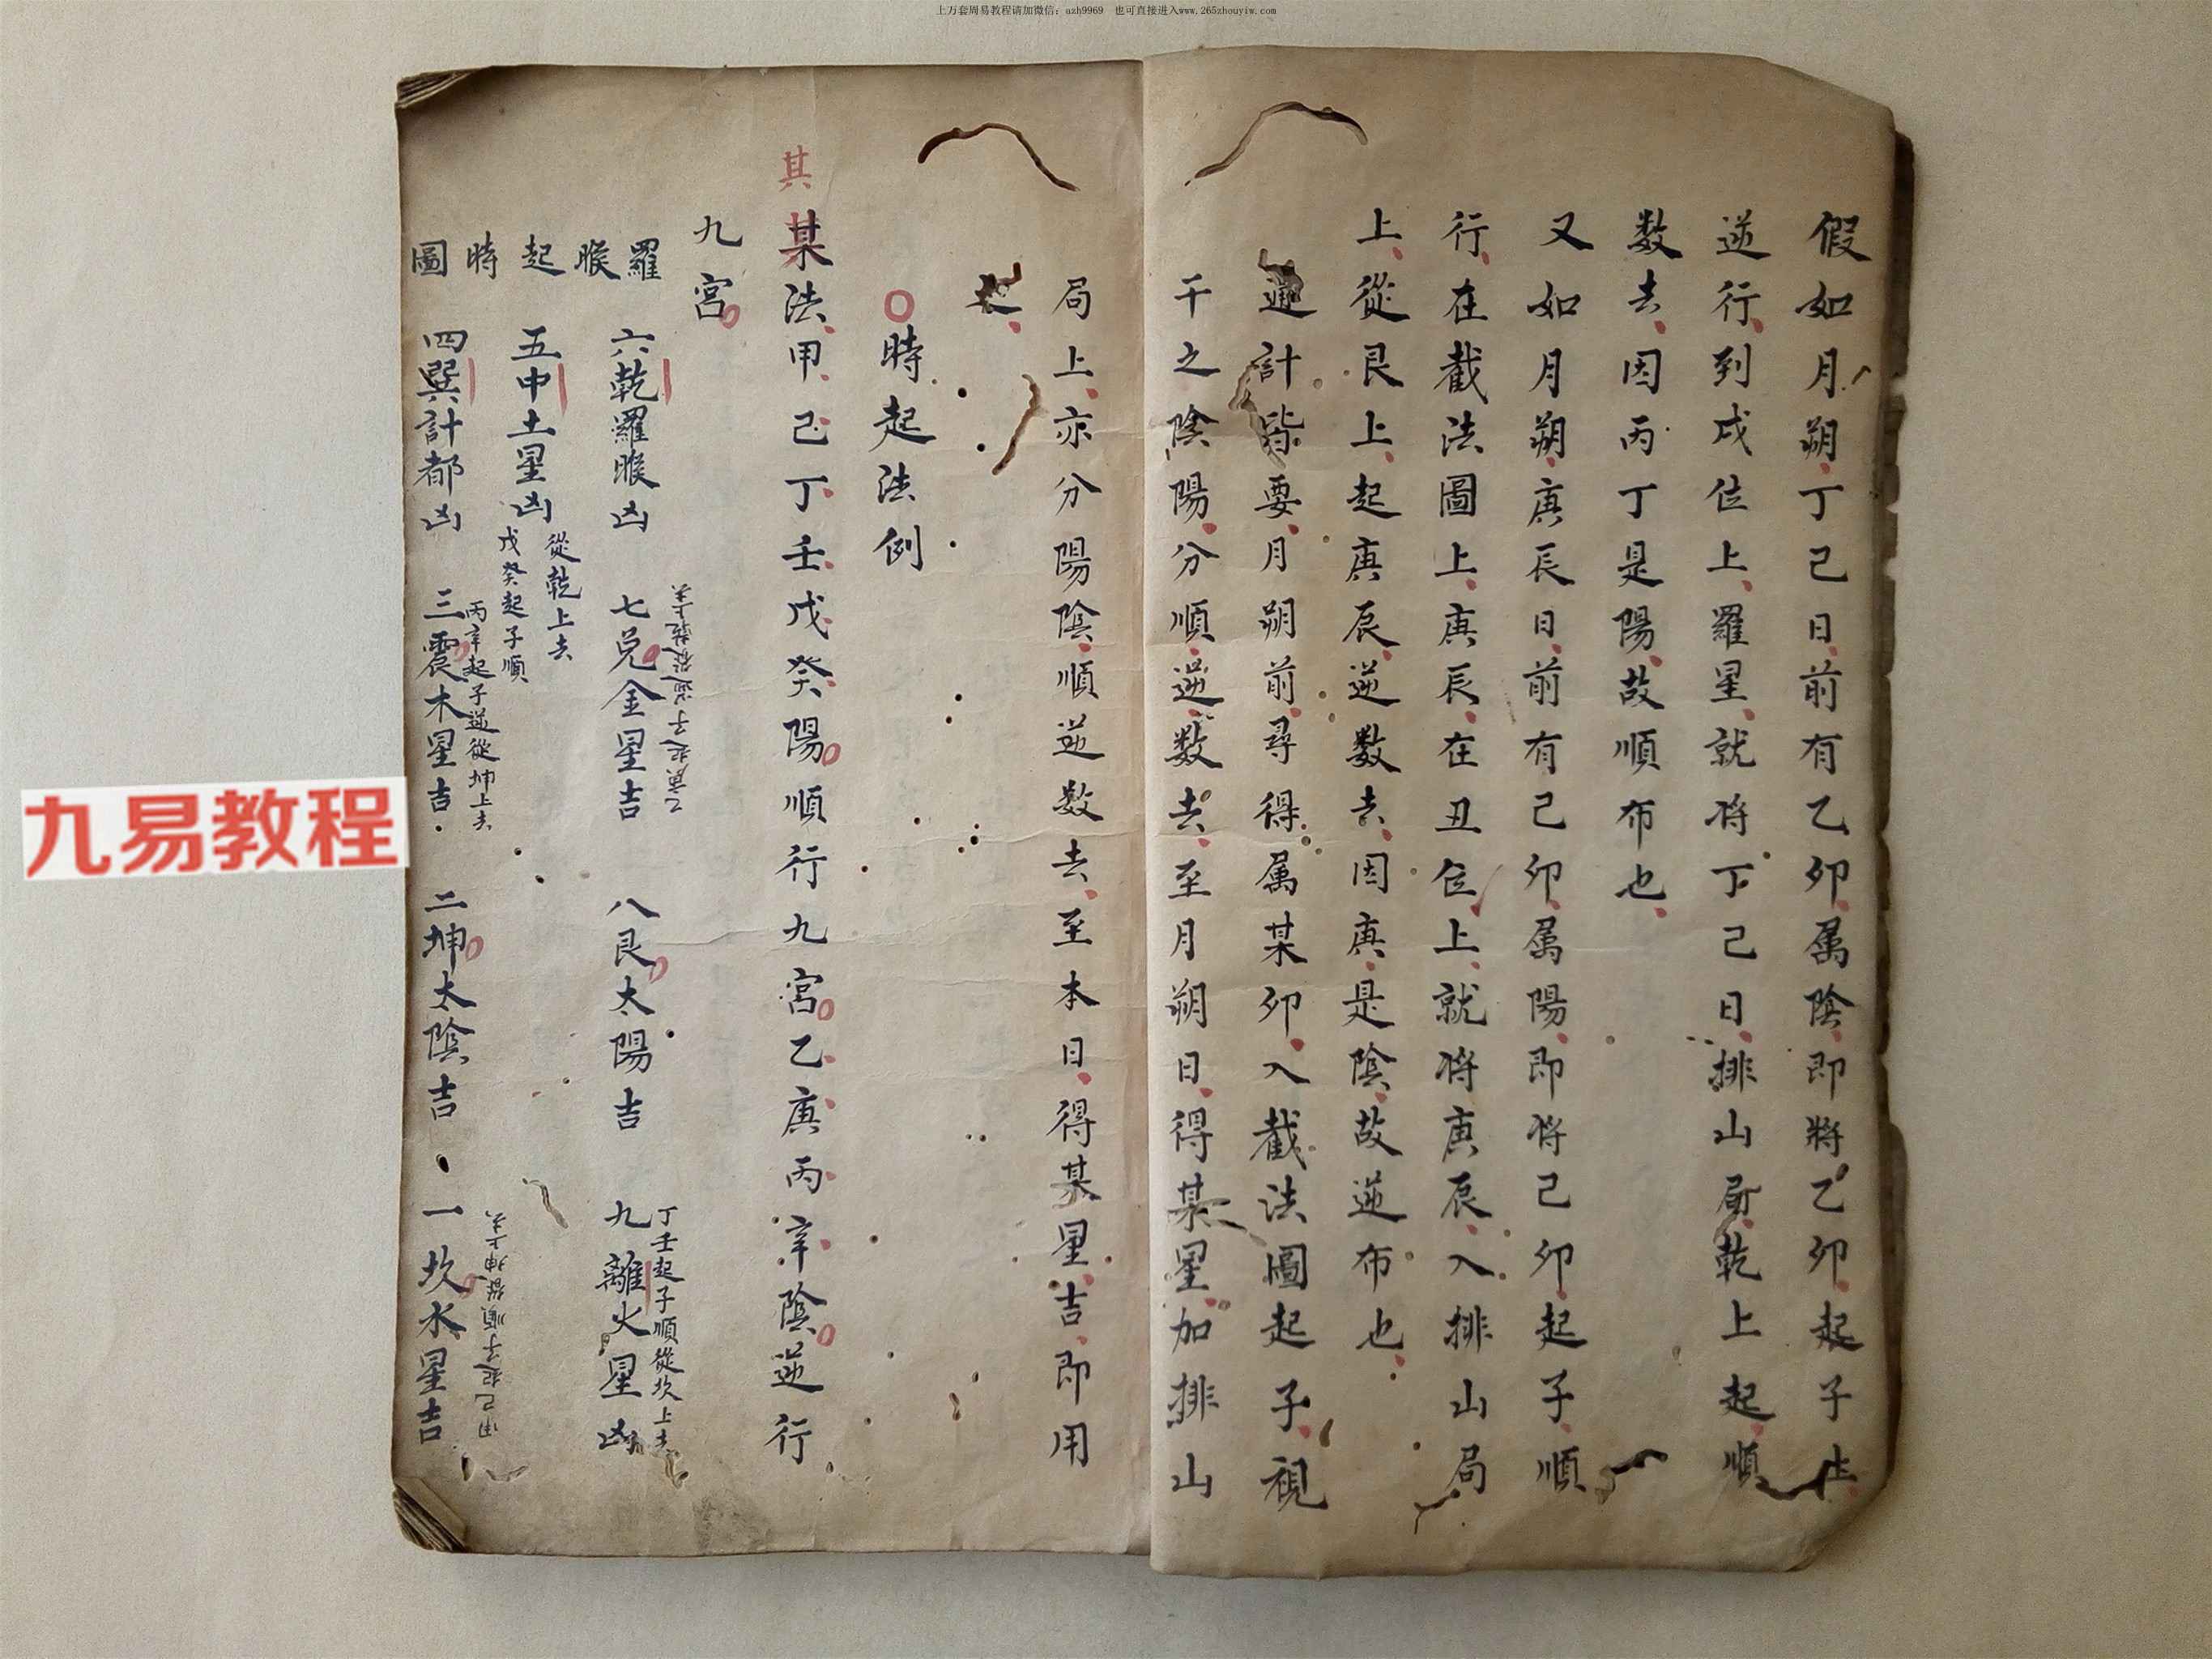 上万套周易教程请加微信：azh9969 也可直接进入www.265zhouyiw.com
假如月朔丁己日前有乙卯属陰即將乙卯起子
逆行到戌位上羅星就将丁己日排山局乾上起順
数去因丙丁是陽故順布也
又如月朔庚辰日前有己卯属陽即将己卯起子順
行在截法圖上庚辰在丑位上就将庚辰入排山局
上從艮上起庚辰逆数去因庚是陰故逆布也
通計皆要月朔前尋得属某卯入截法圖起子視
干之陰陽分順逆数去至月朔日得某星加排山
局上亦分陽陰順逆数去至本日得某星吉即用
之
時起法例
其
某法甲己丁壬戊癸陽順行九宮乙庚丙辛陰逆行
九宮
羅睺起時圖
六乾羅睺凶
七兑金星吉
乙庚起子逆從乾上去
八艮太陽吉
九離火星凶
丁壬起子順從坎上去
五中土星凶
從乾上去
戊癸起子順
四巽計都凶
三震木星吉
丙辛起子逆從坤上去
二坤太陰吉
一坎水星吉
甲己起子順從坤上去
九易教程